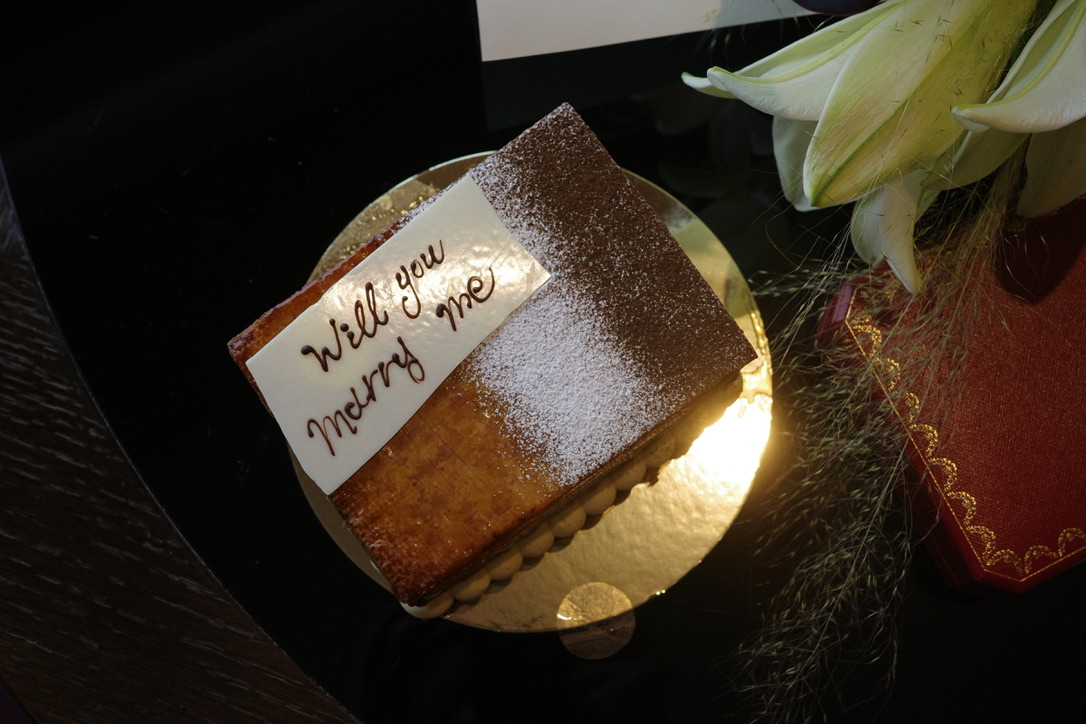 Will you
marry me